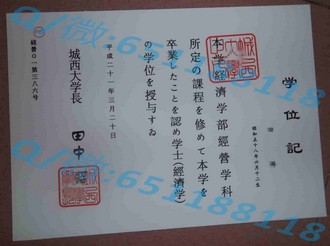 学位記
昭和五十八年六月十二
本学経済学部経営学科
所定の課程を修めて本学を
卒業したことを認め学士(経済学)
の学位を授与する
平成二十一年三月二十日
城西大学長
田中
第三八六号
Q/微:651188118
Q/微:651188118